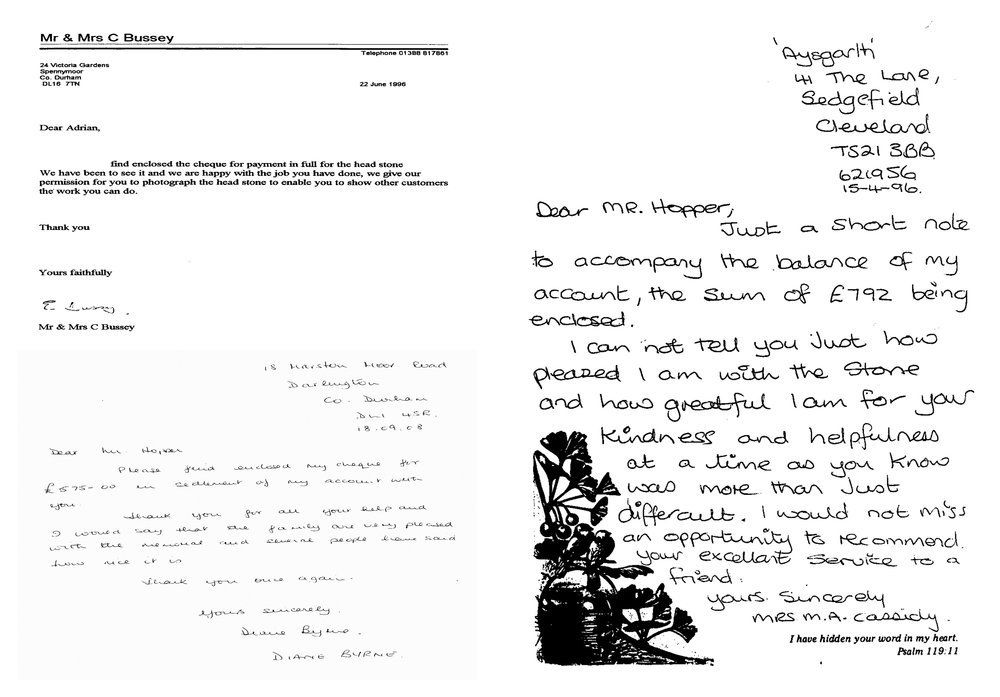 Mr & Mrs C Bussey
Telephone 01388 817861
24 Victoria Gardens
Spennymoor
Co. Durham
DL16 7TN
22 June 1996
Dear Adrian,
find enclosed the cheque for payment in full for the head stone
We have been to see it and we are happy with the job you have done, we give our
permission for you to photograph the head stone to enable you to show other customers
the work you can do.
Thank you
Yours faithfully
E Bussey.
Mr & Mrs C Bussey
18 Marston Moor Road
Darlington
Co. Durham
DL1 4SR.
18.09.08
Dear Mr. Hopper
Please find enclosed my cheque for
£575-00 in settlement of my account with
you.
Thank you for all your help and
I would say that the family are very pleased
with the memorial and several people have said
how nice it is
Thank you once again.
Yours sincerely.
Diane Byrne.
DIANE BYRNE.
'Aysgarth'
41 The Lane,
Sedgefield
Cleveland
TS21 3BB
621956
15-4-96.
Dear MR. Hopper,
Just a short note
to accompany the balance of my
account, the sum of £792 being
enclosed.
I can not tell you Just how
pleased I am with the Stone
and how greatful I am for your
Kindness and helpfulness
at a time as you Know
was more than Just
differcult. I would not miss
an opportunity to recommend.
your excellant Service to a
friend.
yours. Sincerely
MRS M.A. Cassidy.
I have hidden your word in my heart.
Psalm 119:11